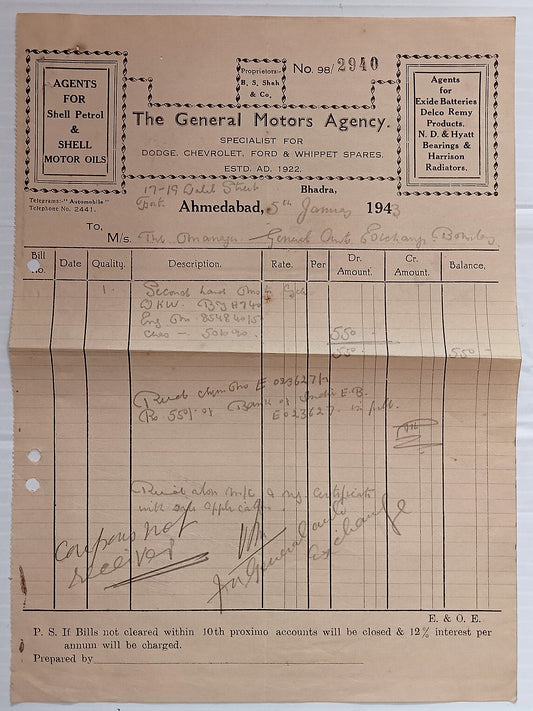 AGENTS
FOR
Shell Petrol
&
SHELL
MOTOR OILS
Proprietors:-
B. S. Shah
& Co.
No. 98/2940
Agents
for
Exide Batteries
Delco Remy
Products.
N. D. & Hyatt
Bearings &
Harrison
Radiators.
The General Motors Agency.
SPECIALIST FOR
DODGE, CHEVROLET, FORD & WHIPPET SPARES.
ESTD. AD. 1922.
17-19 Dalal Street
Bhadra,
Telegrams:- "Automobile"
Telephone No. 2441.
Fort
Ahmedabad, 5th January 1943
To,
M/s. The Manager General Auto Exchange Bombay
Bill No. Date Quality. Description. Rate. Per Dr. Amount. Cr. Amount. Balance,
1 Second hand Motor Cycle
DKW. BYH740
Eng No. 854840/5
Ches - 501090. 550 -
550 - 550 -
Recd cheque No E 023627/
Rs 550/- of Bank of India E.B.
E 023627 in full.
Recd also M/C & reg. Certificate
with sale application
Coupons not
received
for General auto
Exchange
E. & O. E.
P. S. If Bills not cleared within 10th proximo accounts will be closed & 12% interest per
annum will be charged.
Prepared by